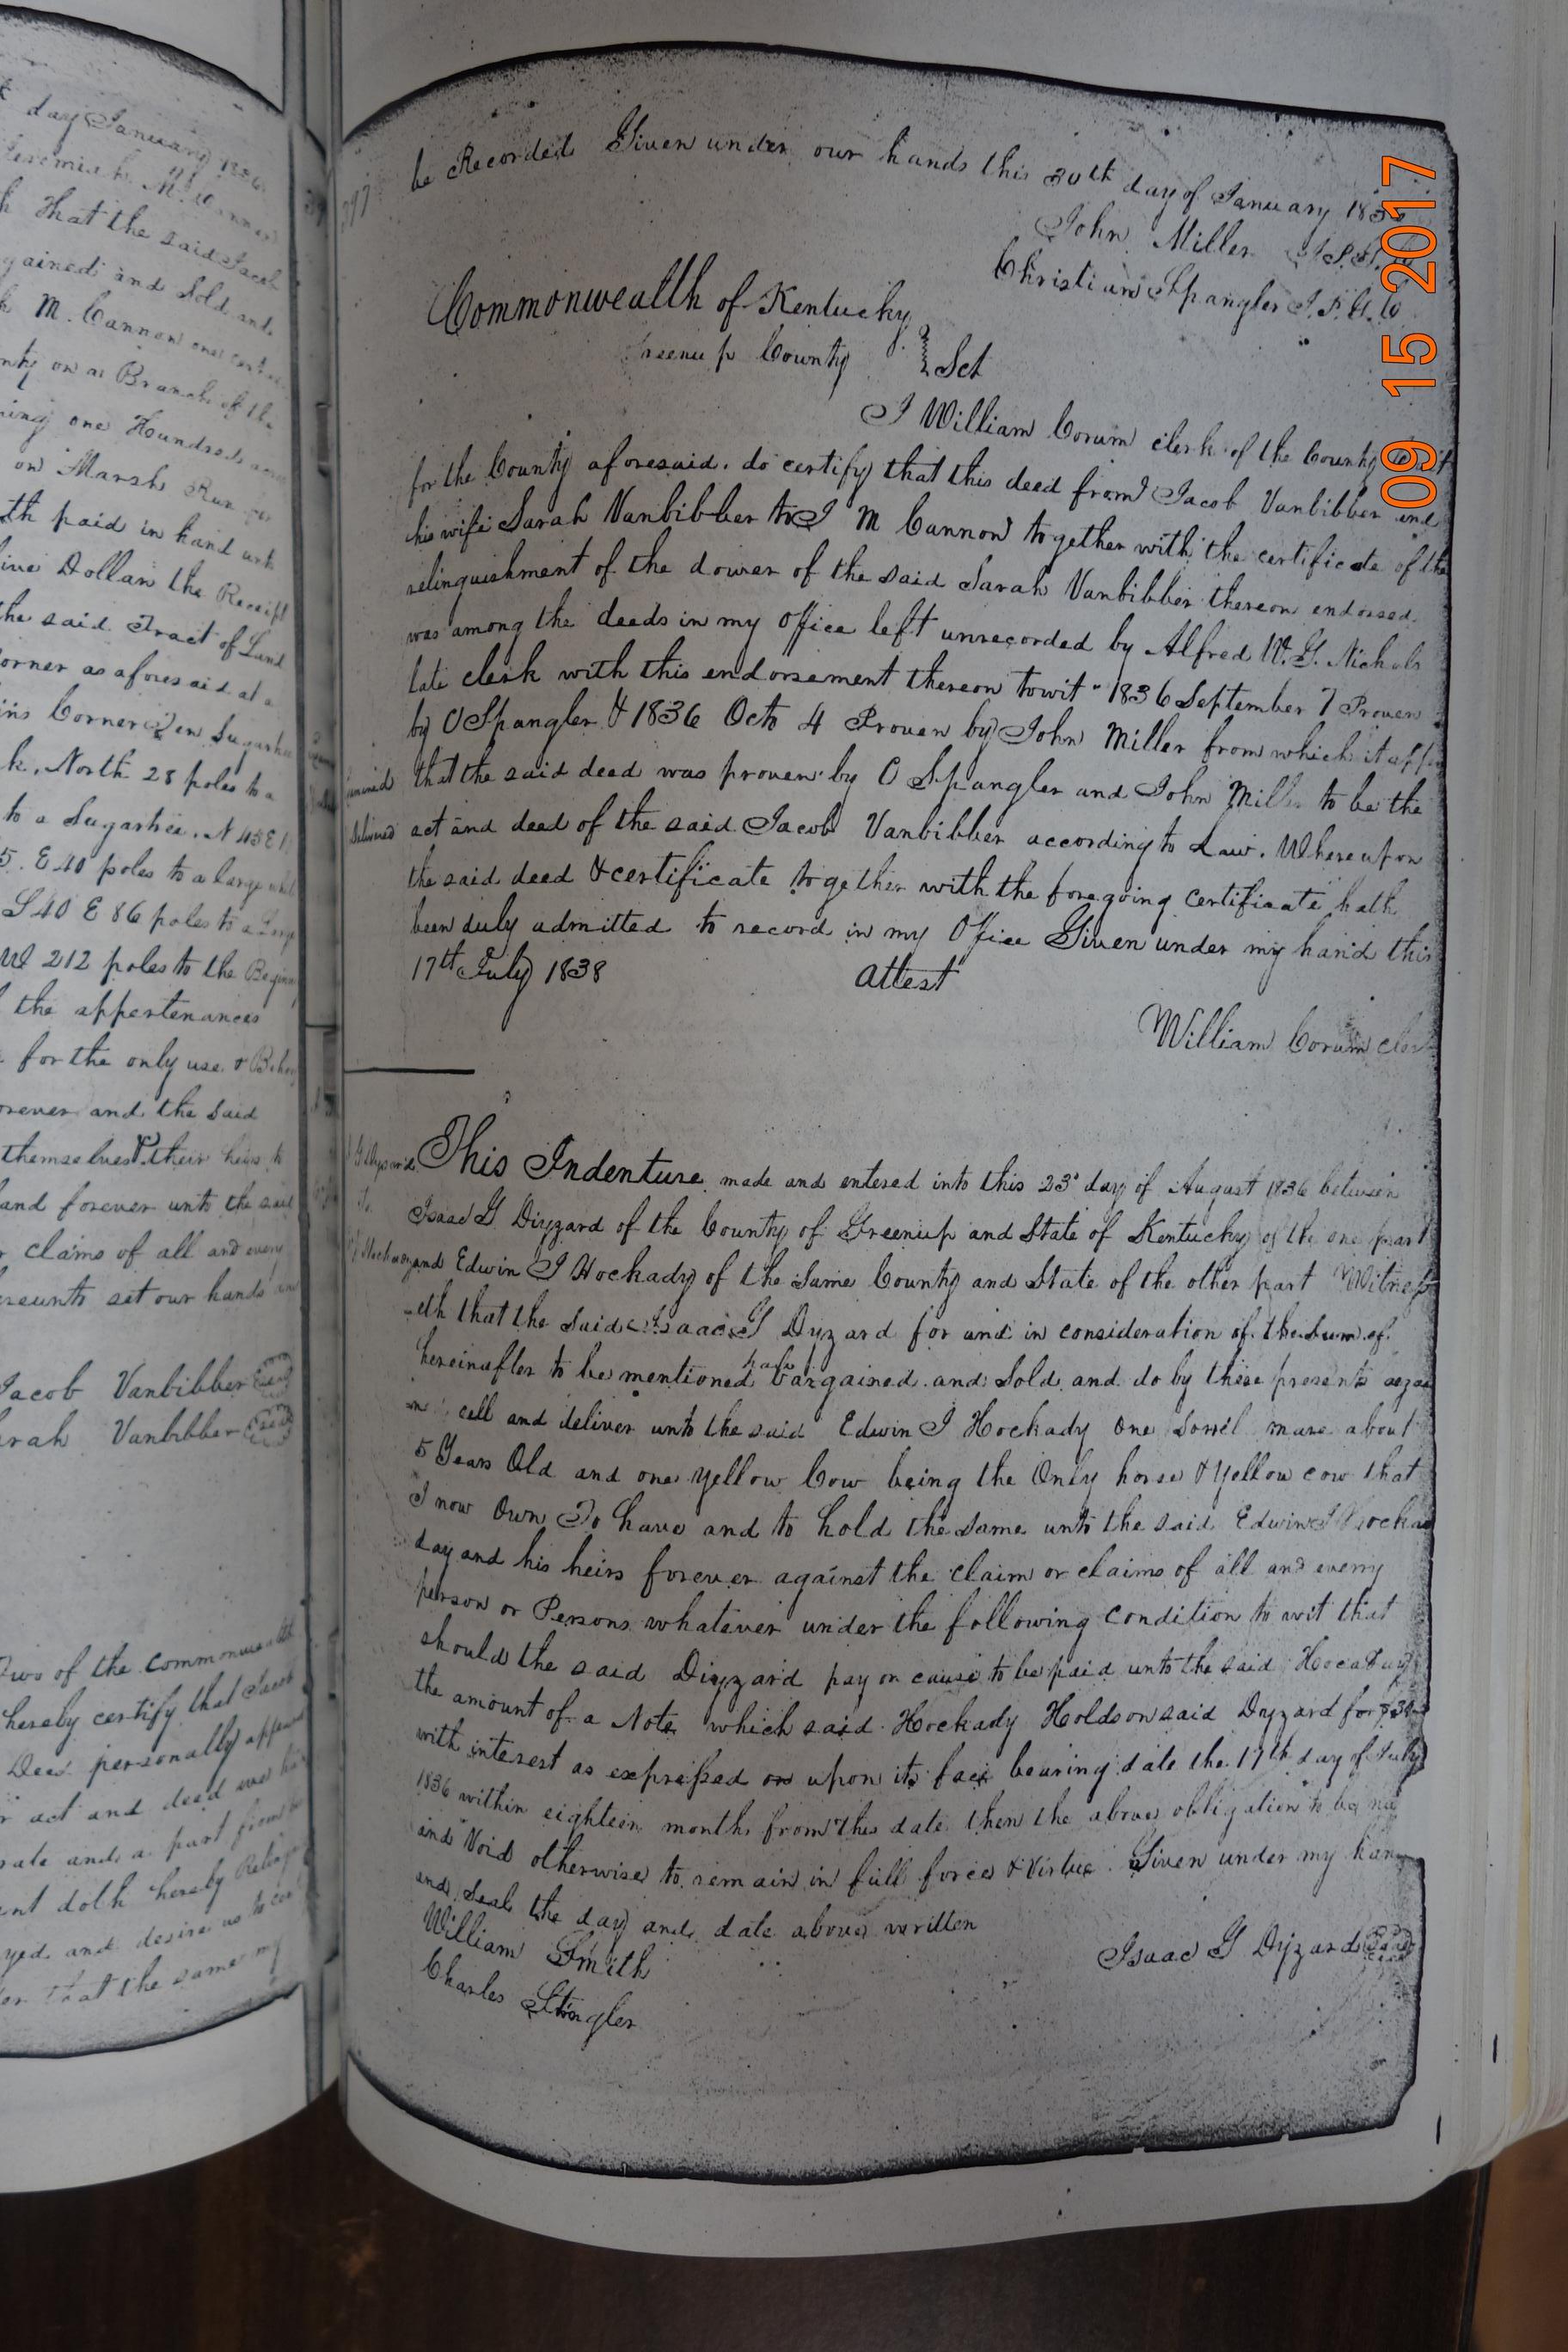 day January 1836
Jeremiah M. Cannon
h That the said Jacob
gained and Sold and
M. Cannon one certain
nty on a Branch of the
ning one Hundred
on Marsh Run
th paid in hand
ive Dollars the Receipt
the said Tract of Land
orner as aforesaid at a
ins Corner
k. North 28 poles to a
to a Sugartree. N 45 E
5. E 40 poles to a large
S 40 E 86 poles to a
W 212 poles to the
the appertenances
for the only use &
orever and the said
themselves & their heirs
and forever unto the said
r claims of all and every
ereunto set our hands and
Jacob Vanbibber Seal
arah Vanbibber Seal
Two of the commonwealth
hereby certify that Jacob
Deed personally
r act and deed
rate and a part from
ent doth hereby
yed and desire us to
er that the same
be Recorded Given under our hands this 30th day of January 1836
John Miller
Christian Spangler J. P. G. C
Commonwealth of Kentucky
Greenup County } Sct
I William Corum clerk of the County
for the County aforesaid. do certify that this deed from Jacob Vanbibber and
his wife Sarah Vanbibber to J M Cannon together with the certificate of the
relinguishment of the dower of the said Sarah Vanbibber thereon endorsed.
was among the deeds in my Office left unrecorded by Alfred W. G. Nichols
late clerk with this endorsement thereon towit " 1836 September 7 Proven
by C Spangler & 1836 Octo 4 Proven by John Miller from which it
that the said deed was proven by C Spangler and John Miller to be the
Delivered act and deed of the said Jacob Vanbibber according to Law. Whereupon
the said deed & certificate together with the foregoing certificate hath
been duly admitted to record in my Office Given under my hand this
17th July 1838 attest
William Corum
This Indenture made and entered into this 23d day of August 1836 between
to
Isaac G Diyzard of the County of Greenup and State of Kentucky of the one part
and Edwin J Hockady of the same County and State of the other part Witness
-eth that the said Isaac G Dyzard for and in consideration of the sum of
hereinafter to be mentioned hath bargained and Sold and do by these presents
cell and deliver unto the said Edwin J Hockady one Sorrel mare about
5 Years Old and one yellow Cow being the Only horse & yellow cow that
I now Own To have and to hold the same unto the said Edwin J
day and his heirs forever against the claim or claims of all and every
person or Persons whatever under the following condition to wit that
should the said Diyzard pay or cause to be paid unto the said
the amount of a Note which said Hockady Holds on said Dyzard for
with interest as expressed on upon its face bearing date the 17th day of July
1836 within eighteen months from this date then the above obligation to be
and Void otherwise to remain in full force & Virtue. Given under my
and Seal the day and date above written
William Smith
Isaac G Dyzard Seal
Charles
09 15 2017